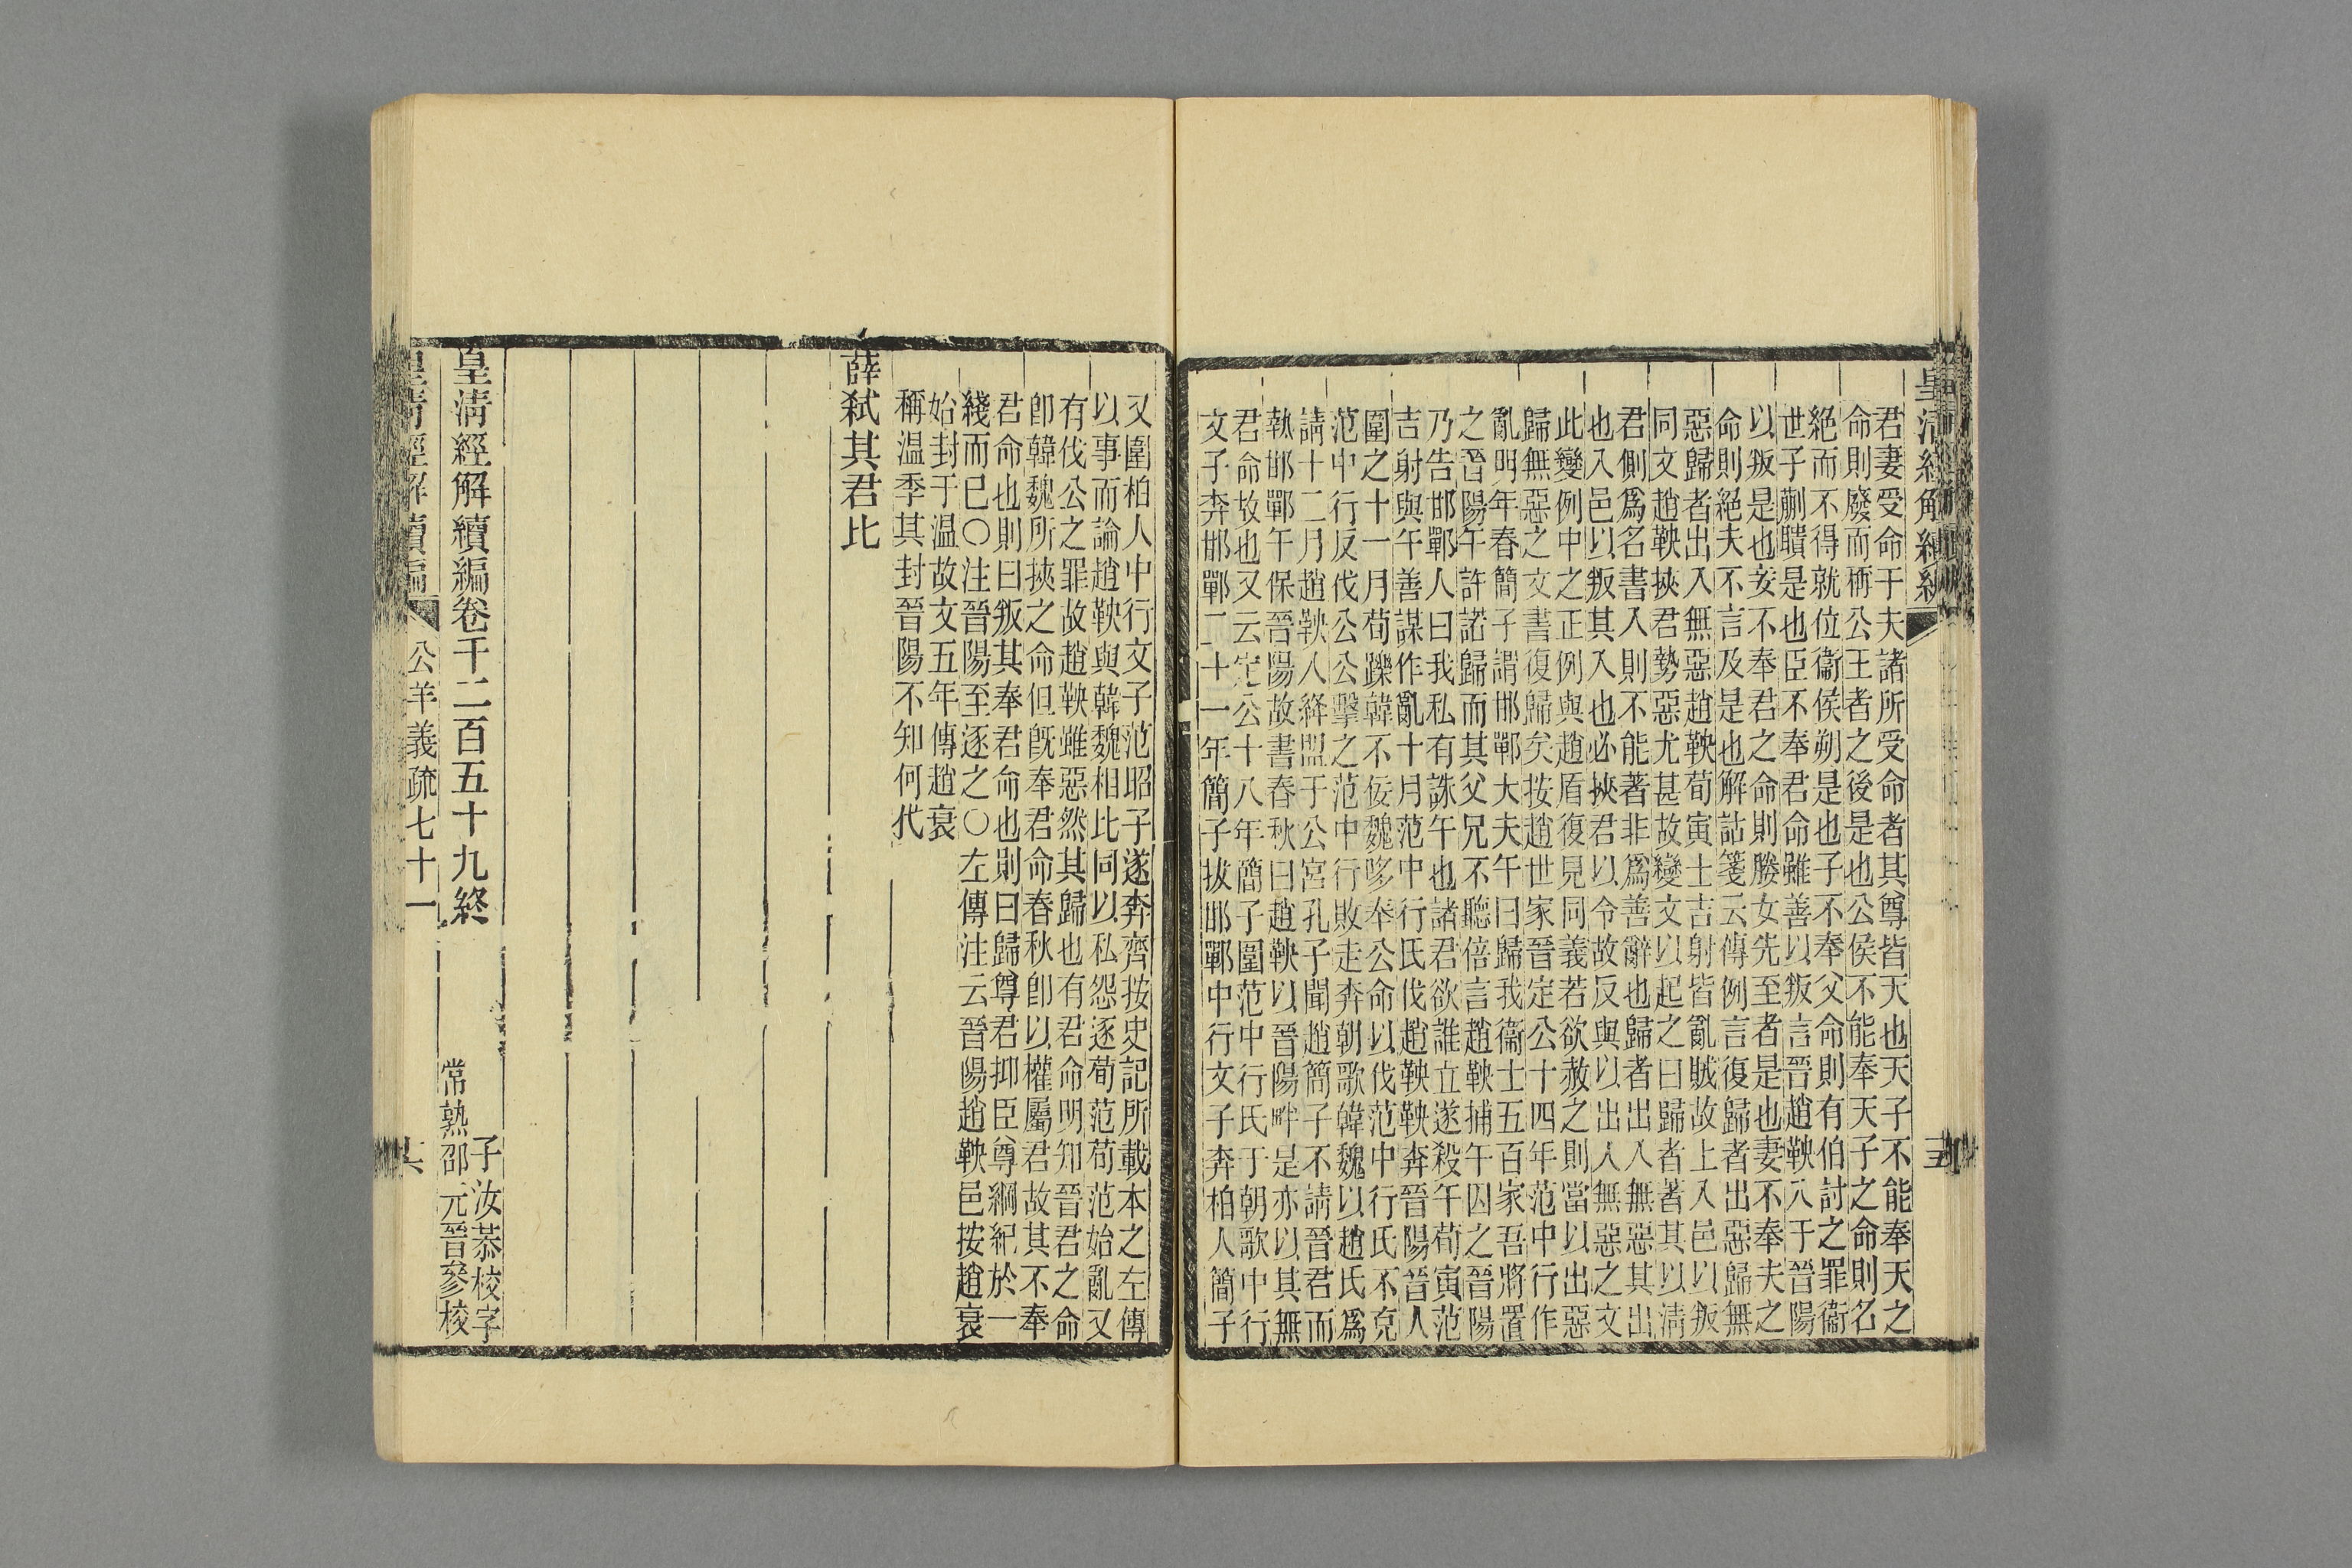 君妻受命于夫諸所受命者其尊皆天也天子不能奉天之
命則廢而稱公王者之後是也公侯不能奉天子之命則名
絕而不得就位衞侯朔是也子不奉父命則有伯討之罪衞
世子蒯聵是也臣不奉君命雖善以叛言晉趙鞅入于晉陽
以叛是也妾不奉君之命則媵女先至者是也妻不奉夫之
命則絕夫不言及是也解詁箋云傳例言復歸者出惡歸無
惡歸者出入無惡趙鞅荀寅士吉射皆亂賊故上入邑以叛
同文趙鞅挾君勢惡尤甚故變文以起之曰歸者著其以淸
君側爲名書入則不能著非爲善辭也歸者出入無惡其出
也入邑以叛其入也必挾君以令故反與以出入無惡之文
此變例中之正例與趙盾復見同義若欲赦之則當以出惡
歸無惡之文書復歸矣按趙世家晉定公十四年范中行作
亂明年春簡子謂邯鄲大夫午曰歸我衞士五百家吾將置
之晉陽午許諾歸而其父兄不聽倍言趙鞅捕午囚之晉陽
乃告邯鄲人曰我私有誅午也諸君欲誰立遂殺午荀寅范
吉射與午善謀作亂十月范中行氏伐趙鞅鞅奔晉陽晉人
圍之十一月荀躒韓不佞魏哆奉公命以伐范中行氏不克
范中行反伐公公擊之范中行敗走奔朝歌韓魏以趙氏爲
請十二月趙鞅入絳盟于公宮孔子聞趙簡子不請晉君而
執邯鄲午保晉陽故書春秋曰趙鞅以晉陽畔是亦以其無
君命故也又云定公十八年簡子圍范中行氏于朝歌中行
文子奔邯鄲二十一年簡子拔邯鄲中行文子奔柏人簡子
又圍柏人中行文子范昭子遂奔齊按史記所載本之左傳
以事而論趙鞅與韓魏相比同以私怨逐荀范荀范始亂又
有伐公之罪故趙鞅雖惡然其歸也有君命明知晉君之命
卽韓魏所挾之命但旣奉君命春秋卽以權屬君故其不奉
君命也則曰叛其奉君命也則曰歸尊君抑臣尊綱紀於一
綫而已〇注晉陽至逐之〇左傳注云晉陽趙鞅邑按趙衰
始封于温故文五年傳趙衰
稱温季其封晉陽不知何代
薛弑其君比
皇淸經解續編卷千二百五十九終
子汝恭校字
常熟邵元晉參校
皇淸經解續編
公羊義疏七十一